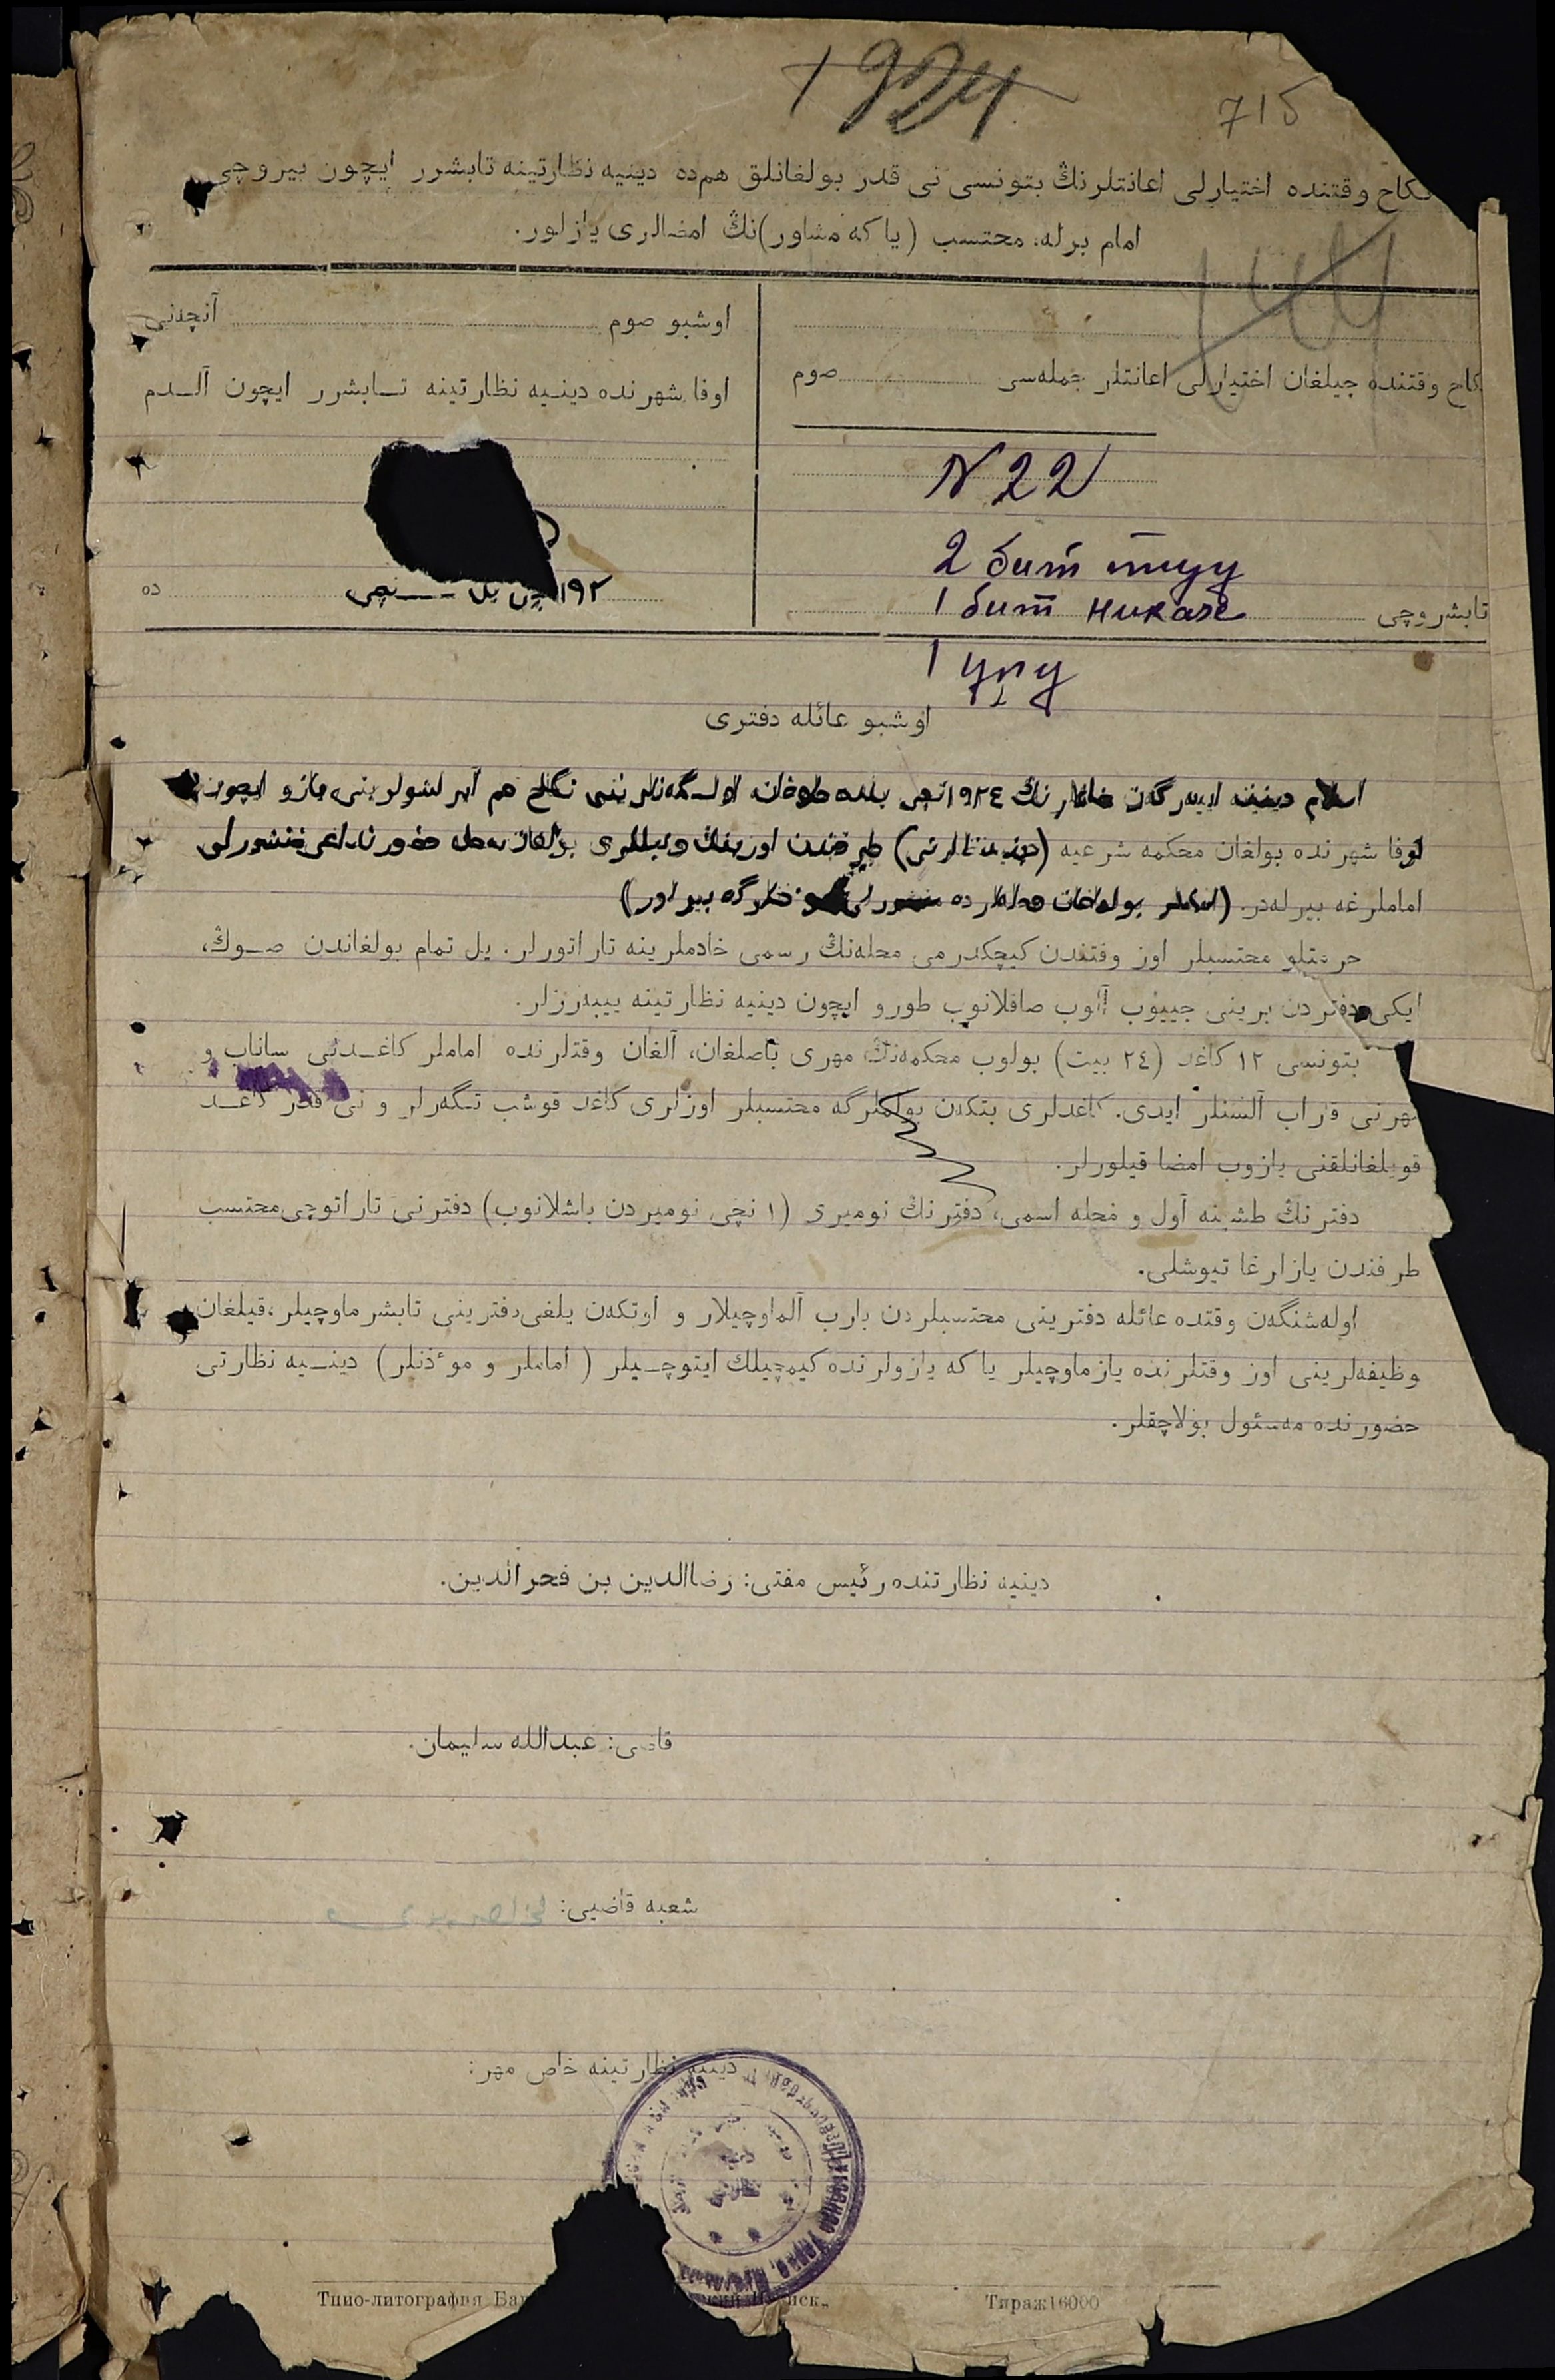 1924
715
نكاح وقتنده اختيارلى اعانتلرنڭ بتونسى نى قدر بولغانلق هم‌ده دينيه نظارتينه تابشرر ايچون بيروچى
امام برله، محتسب (ياكه مشاور)نڭ امضالرى يازلور.
اوشبو صوم آنچدنى
كاح وقتنده جيلغان اختيارلى اعانتلر جمله‌سى صوم
اوفا شهرنده دينيه نظارتينه تابشرر ايچون آلدم
N 22
2 бит туу
١٩٢ نچى يل نچى ده
1 бит никах
تابشروچى
1 үлү
اوشبو عائله دفترى
اسلام دينينه ١٩٢٤نچى يلده طوغان نكاح هم ايچون
اوفا شهرنده بولغان محكمه شرعيه (دينيه نظارتى) طرفندن اوزينڭ وكيللرى
اماملرغه بيرله‌در. (اماملر بولماغان محله‌لرده
حرمتلو محتسبلر اوز وقتندن كيچكدرمى محله‌نڭ رسمى خادملرينه تاراتورلر. يل تمام بولغاندن صوڭ،
ايكى دفتردن برينى جييوب آلوب صاقلانوب طورو ايچون دينيه نظارتينه ييبه‌رزلر.
بتونسى ١٢ كاغد (٢٤ بيت) بولوب محكمه‌نڭ مهرى باصلغان، آلغان وقتلرنده اماملر كاغدنى ساناب و
مهرنى قاراب آلسنلر ايدى. كاغدلرى بتكدن بولملرگه محتسبلر اوزلرى كاغد قوشب تگه‌رلر و نى قدر كاغد
قويلغانلقنى يازوب امضا قيلورلر.
دفترنڭ طشينه آول و محله اسمى، دفترنڭ نوميرى (١ نچى نوميردن باشلانوب) دفترنى تاراتوچى محتسب
طرفندن يازارغا تيوشلى.
اوله‌شنگه‌ن وقتده عائله دفترينى محتسبلردن بارب آلماوچيلار و اوتكه‌ن يلغى دفترينى تابشرماوچيلر، قيلغان
وظيفه‌لرينى اوز وقتلرنده يازماوچيلر ياكه يازولرنده كيمچيلك ايتوچيلر (اماملر و موءذنلر) دينيه نظارتى
حضورنده مه‌سئول بولاچقلر.
دينيه نظارتنده رئيس مفتى: رضاالدين بن فخرالدين.
قاضى: عبدالله سليمان.
شعبه قاضيى:
دينيه نظارتينه خاص مهر:
Типо-литография Тираж 16000